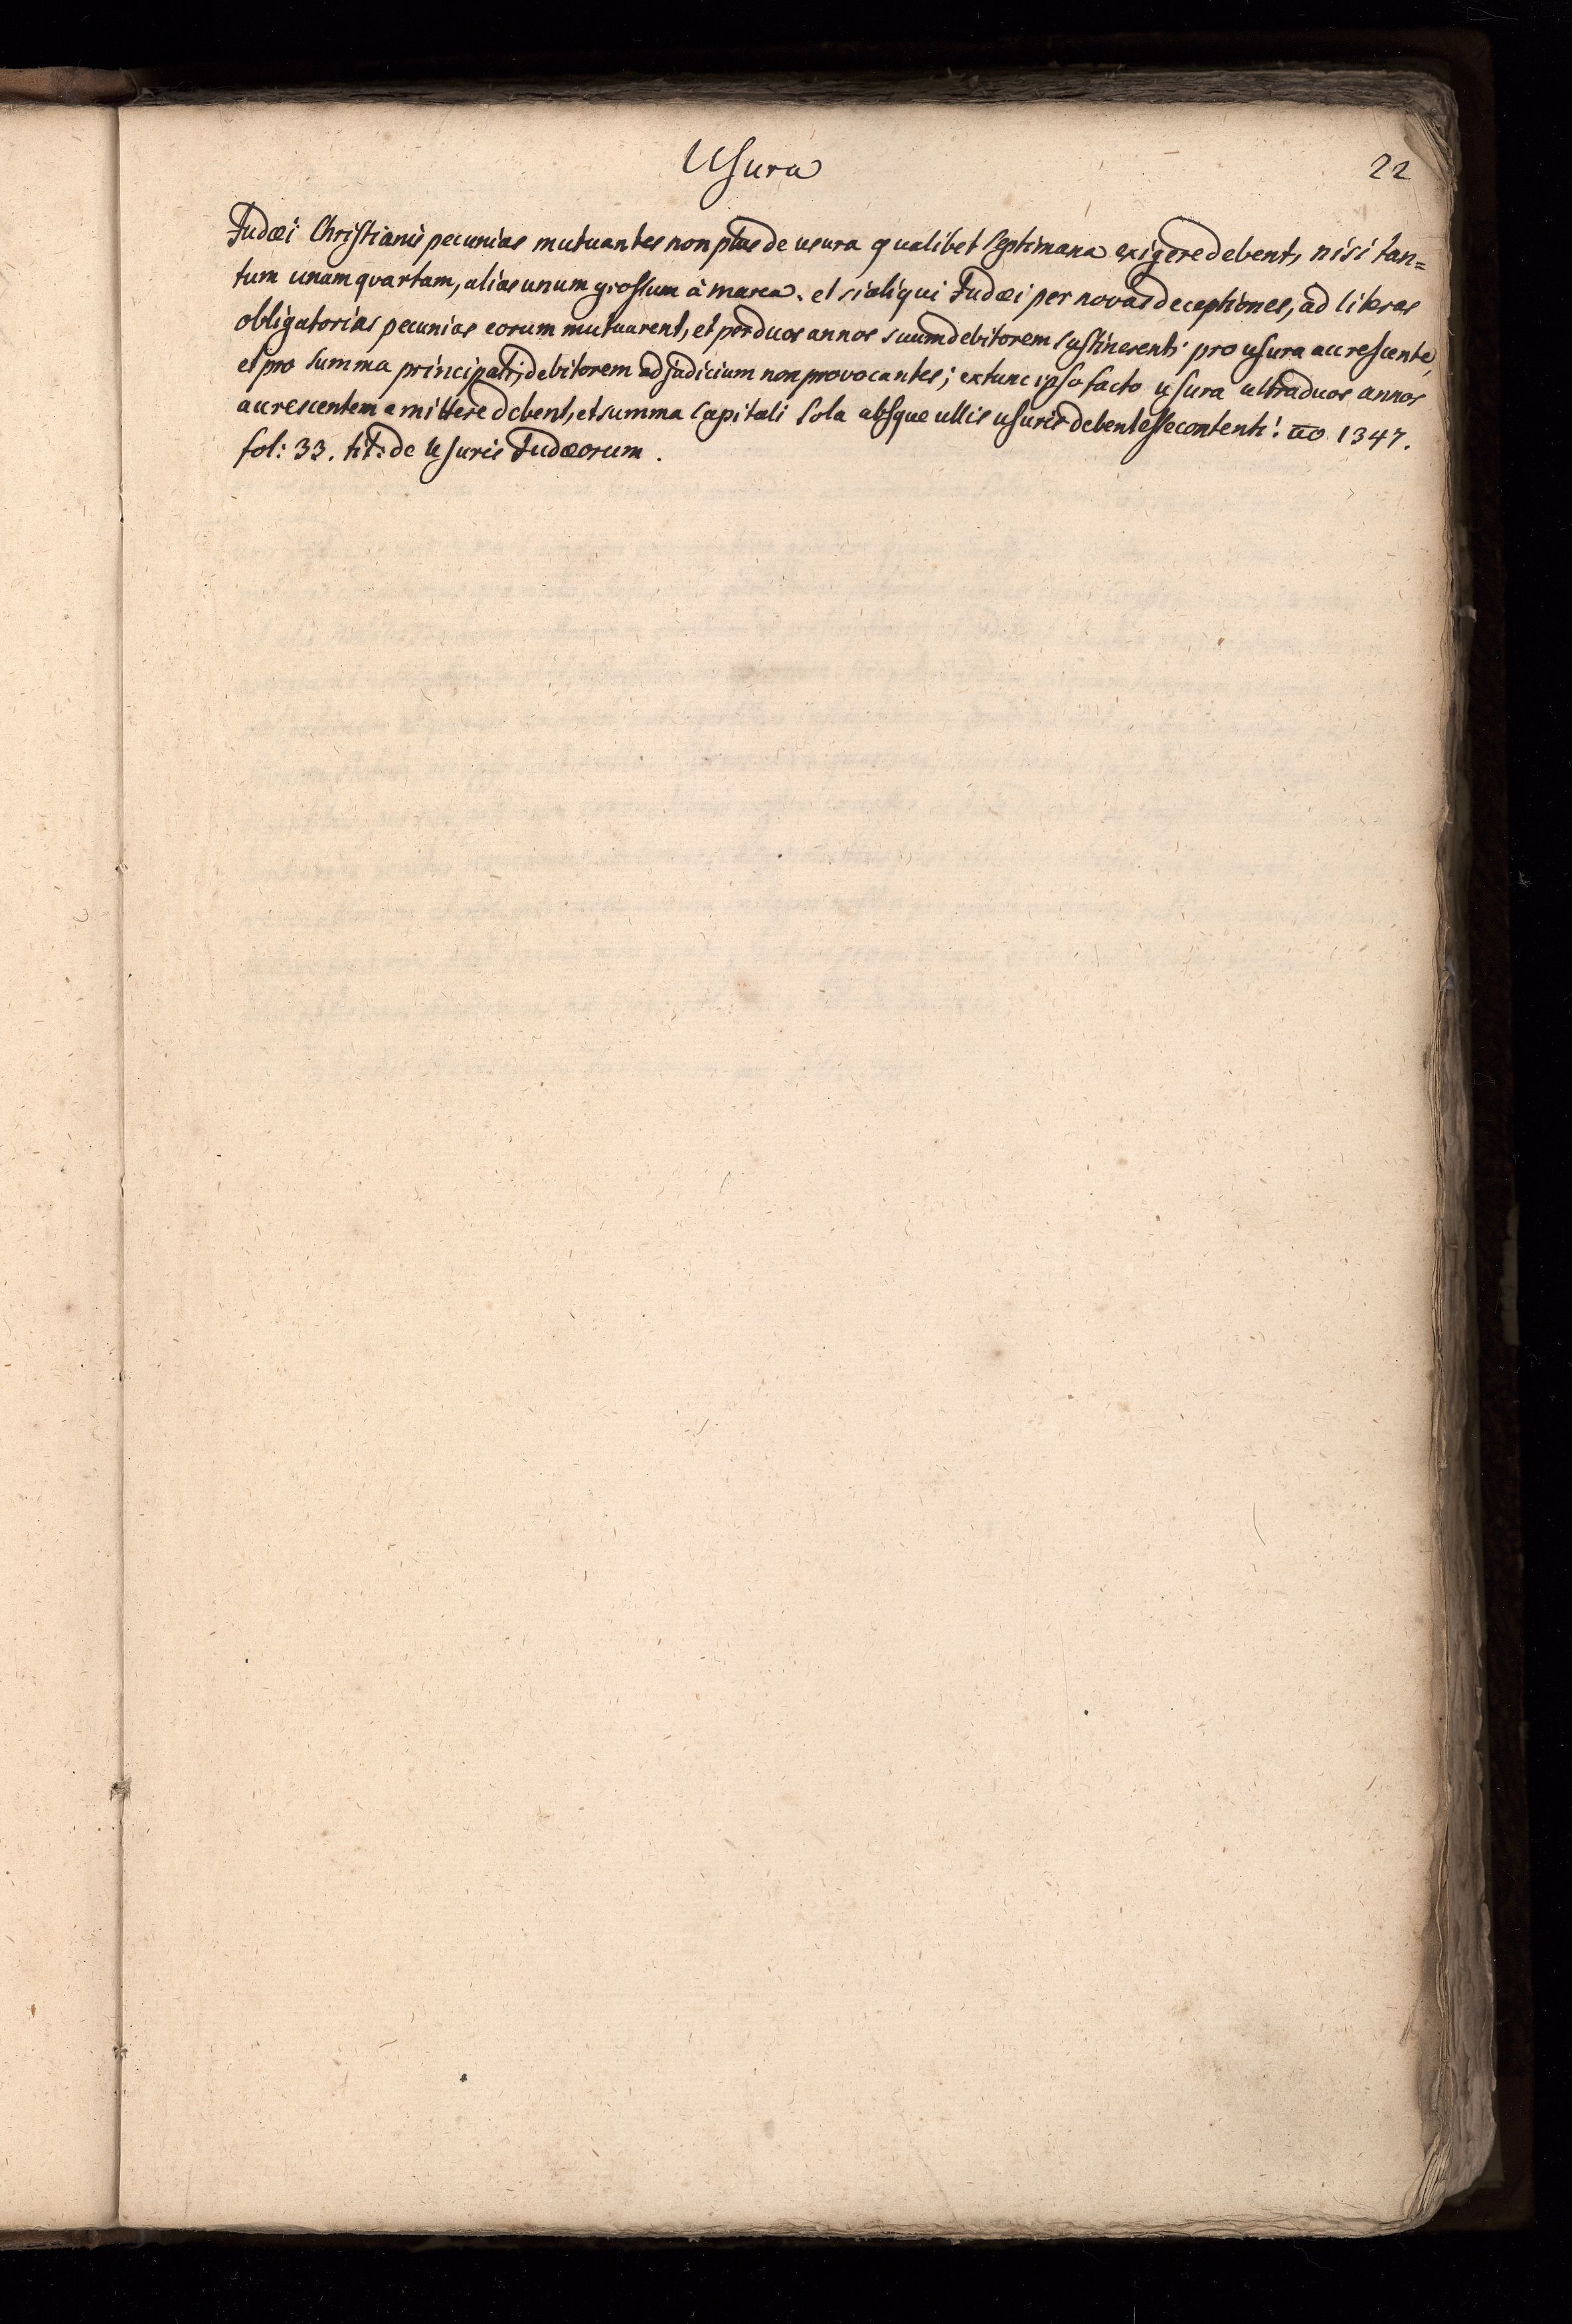 Usura
22
Judæi Christianis pecunias mutuantes non plus de usura qualibet septimana exigere debent, nisi tan=
tum unam qvartam, alias unum grossum à marca. et si aliqui Judæi per novas deceptiones, ad literas
obligatorias pecunias eorum mutuarent, et per duos annos suum debitorem sustinerent pro usura accrescente,
et pro summa principali, debitorem ad judicium non provocantes; extunc ipso facto usura ultra duos annos
accrescentem amittere debent, et summa capitali sola absque ullis usuris debent esse contenti. 1347.
fol: 33. tit: de Usuris Judæorum.